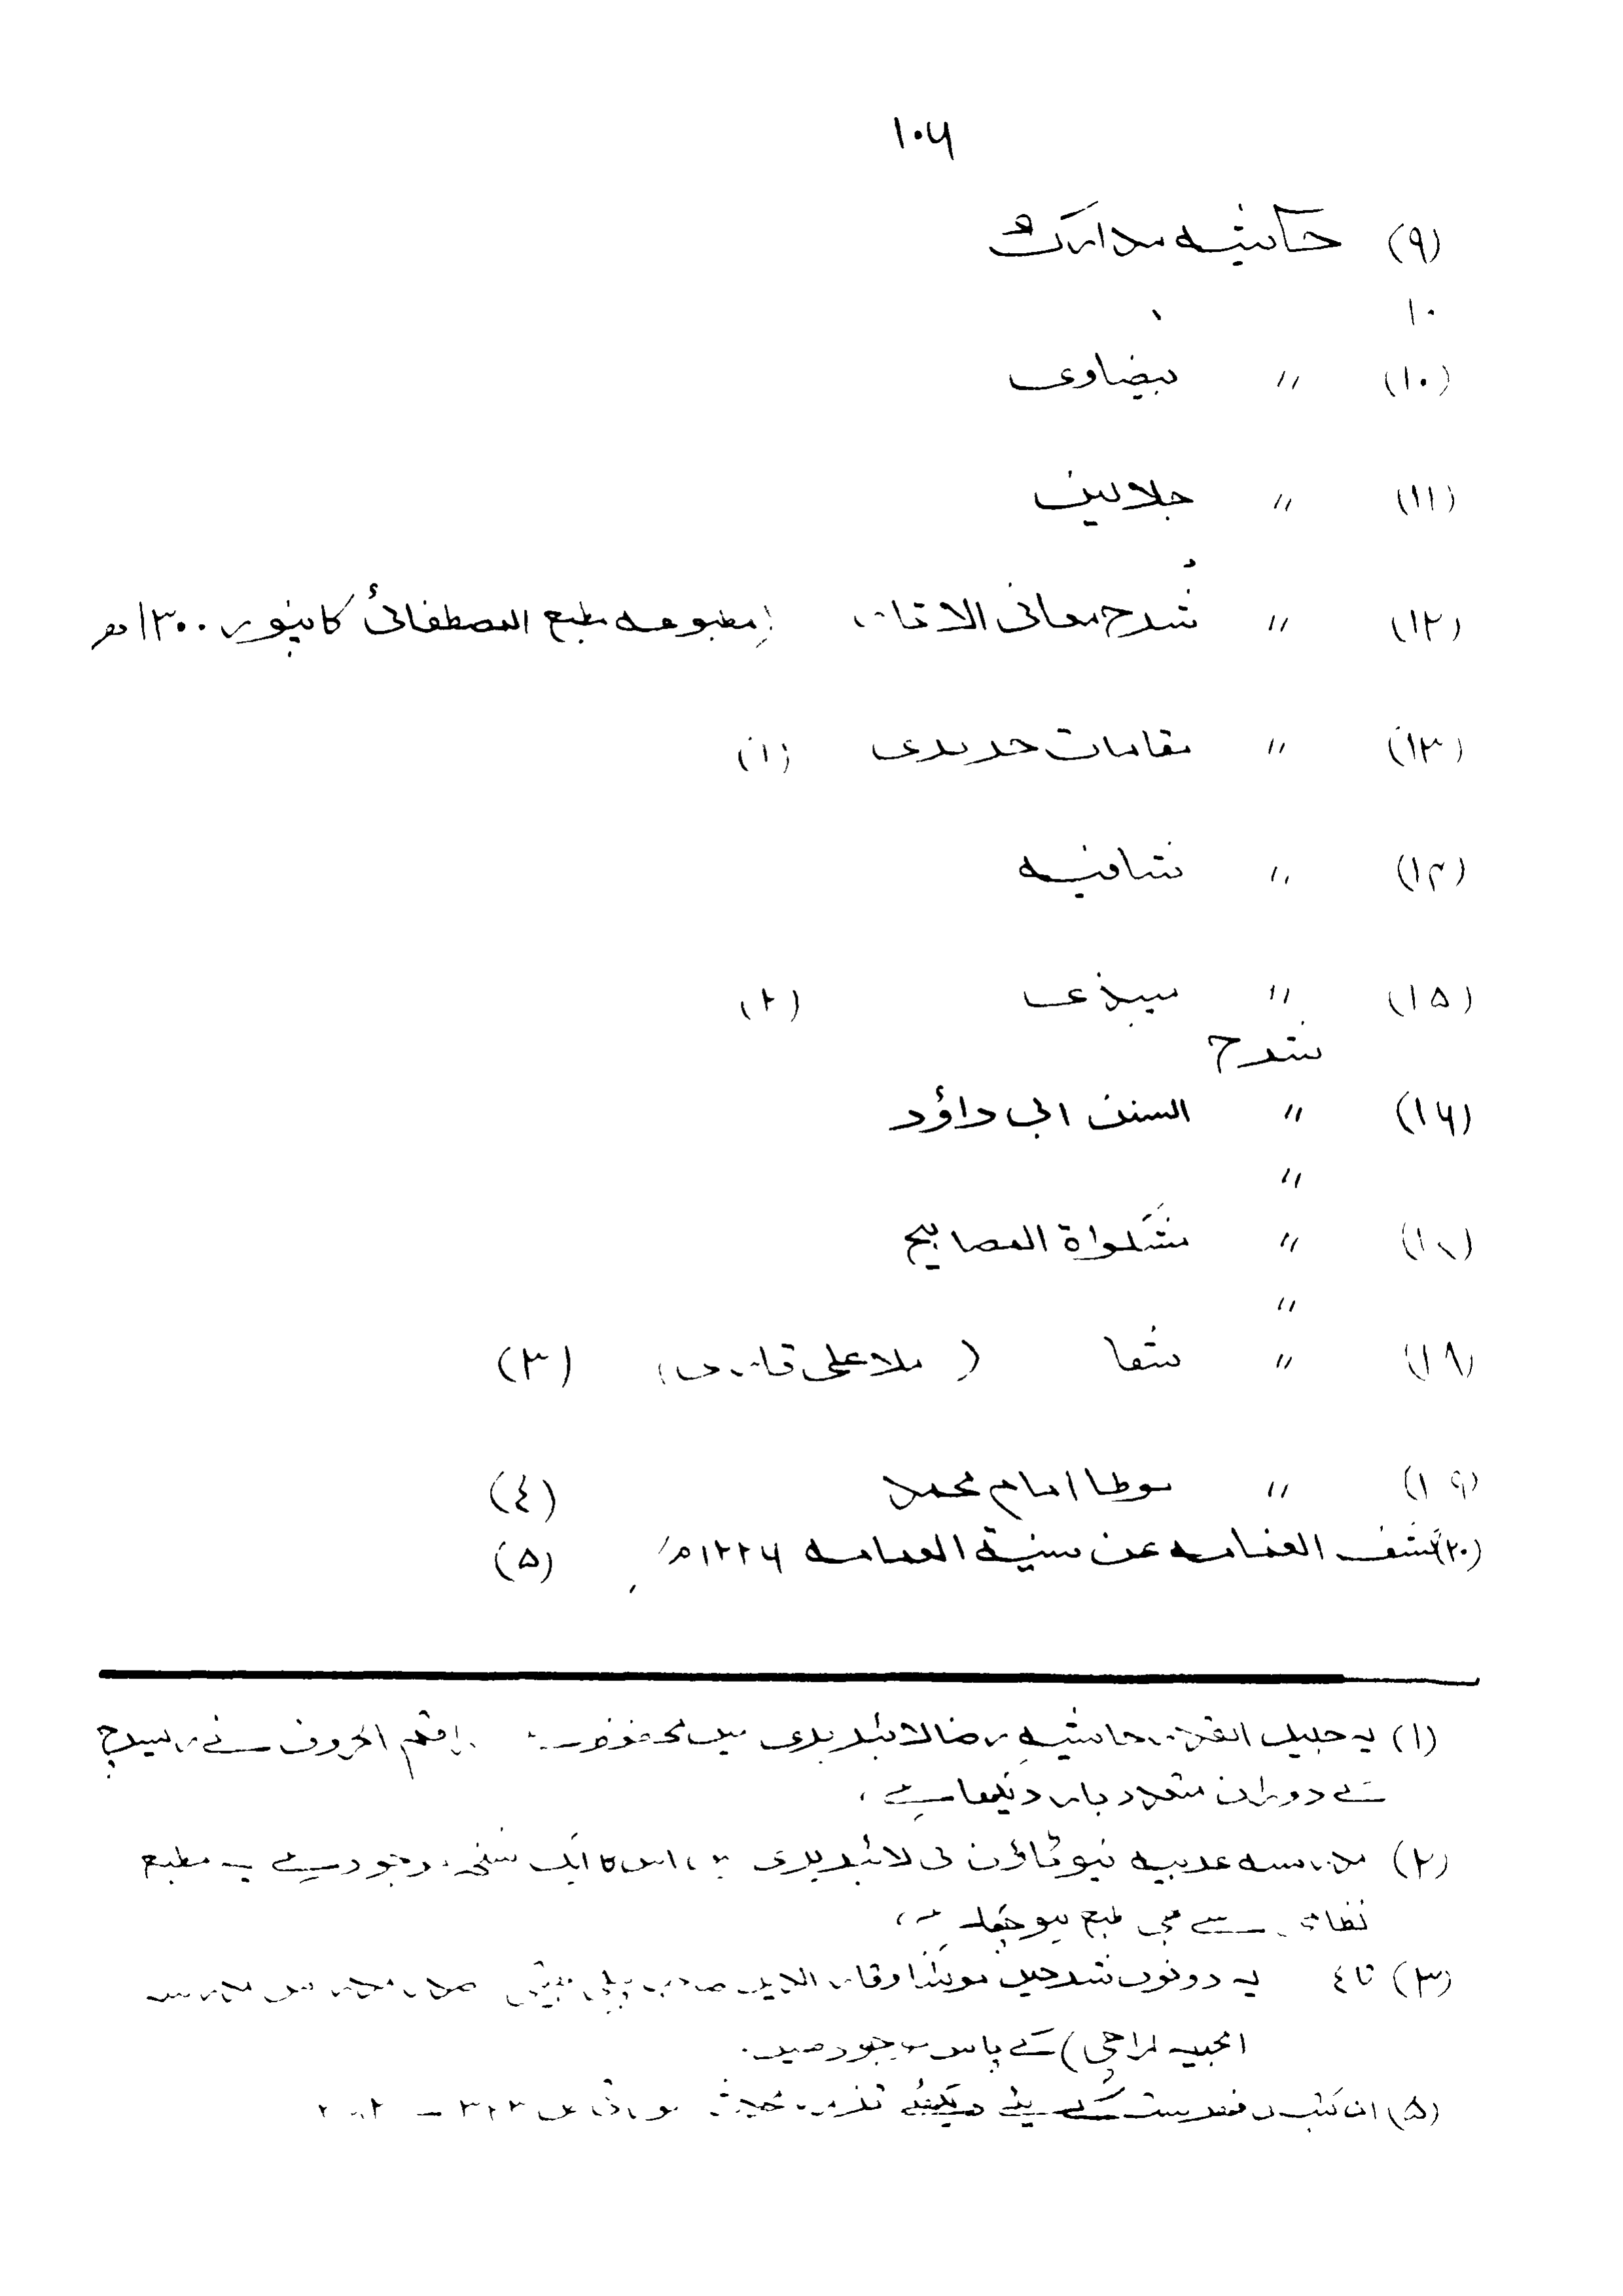 ۱۰۶
(۹) حاشیہ مدارک
۱۰
(۱۰) 〃 بیضاوی
(۱۱) 〃 جلالین
(۱۲) 〃 شرح معانی الاثار (مطبوعہ مطبع المصطفائی کانپور ۱۳۰۰ھ
(۱۳) 〃 مقامات حریری (۱)
(۱۴) 〃 شافیہ
(۱۵) 〃 میبذی (۲)
شرح
(۱۶) 〃 السنن ابی داؤد
〃
(۱۷) 〃 مشکواة المصابیح
〃
(۱۸) 〃 شفا (ملا علی قاری) (۳)
(۱۹) 〃 موطا امام محمد (٤)
(۲۰) کشف الغمامہ عن سنیة العمامہ ۱۲۲۶ھ (۵)
(۱) یہ جلیل القدر حاشیہ رضا لائبریری میں محفوظ ہے۔ راقم الحروف نے ریسرچ
کے دوران متعدد بار دیکھا ہے،
(۲) مدرسہ عربیہ نیو ٹاؤن کی لائبریری میں اس کا ایک نسخہ موجود ہے یہ مطبع
نظامی سے بھی طبع ہو چکا ہے،
(۳) تا ٤ یہ دونوں شرحیں مولانا وقار الدین صاحب پیلی بھیتی صدر مدرس مدرسہ
امجدیہ کراچی) کے پاس موجود ہیں۔
(۵) ان کتب کی فہرست کے لئے دیکھئے تذکرہ محدث سورتی ص